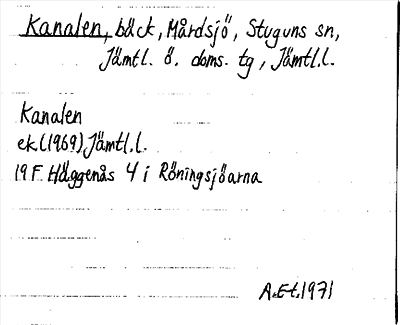 Kanalen, bäck, Mårdsjö, Stuguns sn,
Jämtl. ö. doms. tg, Jämtl.l.
Kanalen
ek.(1969) Jämtl.l.
19 F Häggenås 4 i Röningsjöarna
A.Et.1971